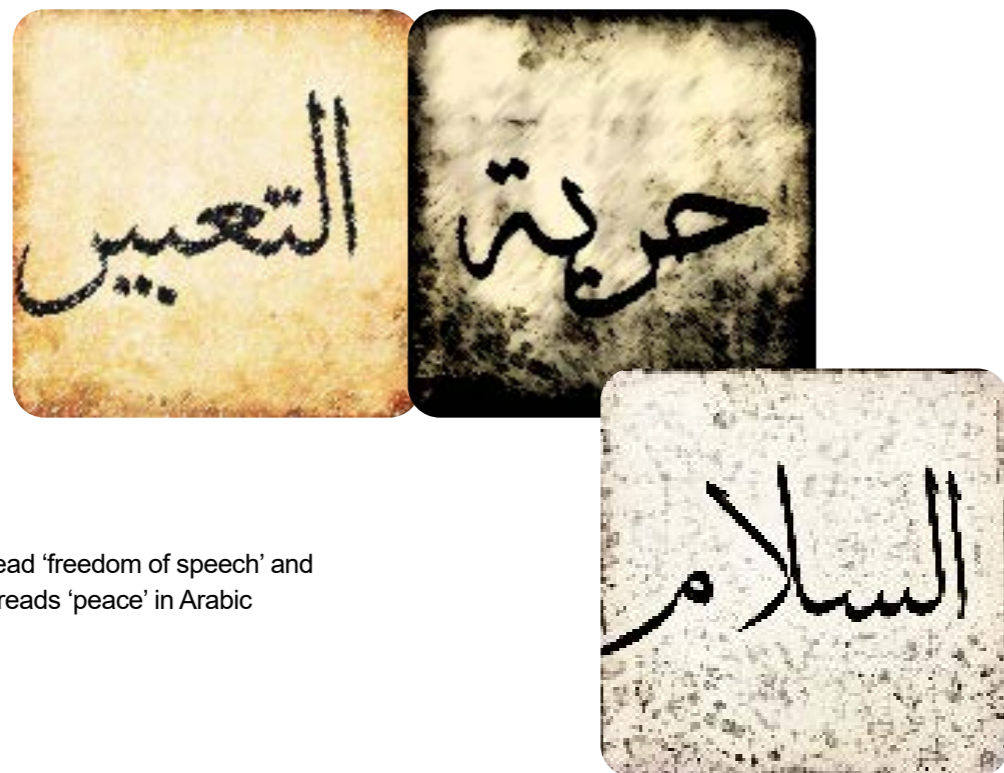 حرية التعبير
السلام
ead ‘freedom of speech’ and
reads ‘peace’ in Arabic